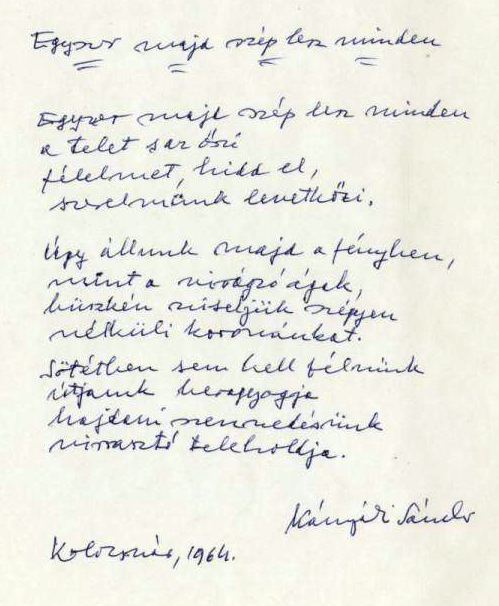 Egyszer majd szép lesz minden
Egyszer majd szép lesz minden
a telet s az őszi
félelmet, hidd el,
szerelmünk levetkőzi.
Úgy állunk majd a fényben,
mint a virágzó ágak,
büszkén viseljük szégyen
nélküli koronánkat.
Sötétben sem kell félnünk
útjaink beragyogja
hajdani szenvedésünk
virrasztó teleholdja.
Kányádi Sándor
Kolozsvár, 1964.